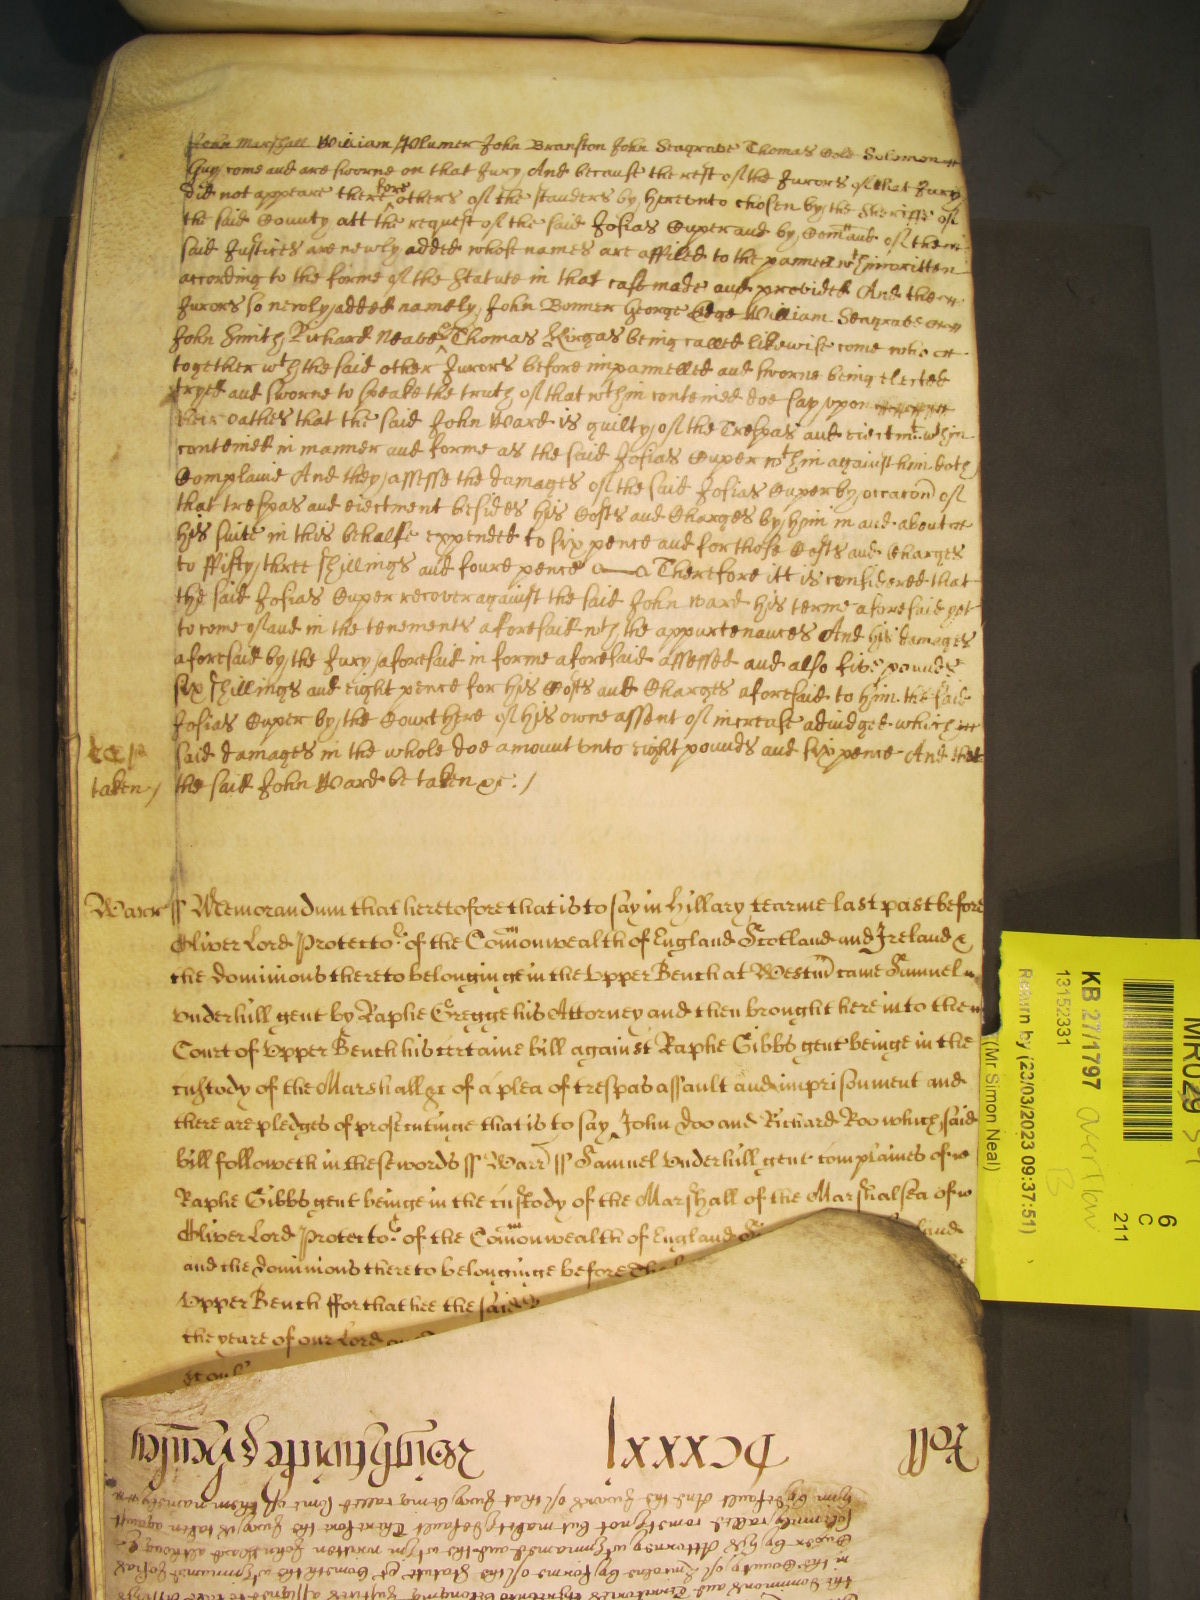 John Marshall William Plumer John Branston John Seagrave Thomas Cole Solomon
Guy come and are sworne on that Jury And because the rest of the Jurors of that Jury
did not appeare therefore others of the standers by hereunto chosen by the Sheriffe of
the said County att the request of the said Josias Cuper and by Com̄aund of the
said Justices are newly added whose names are affiled to the pannell wthin written
according to the forme of the Statute in that case made and provided And the
Jurors so newly added namely John Bonner George Edge William Seagrave
John Smith Richard Neave & Thomas Kirgas being called likewise come who
together wth the said other Jurors before impannelled and sworne being elected
tryed and sworne to speake the truth of that wthin conteined doe say upon
their oathes that the said John Ward is guilty of the Trespas and eiectmt wthin
conteined in manner and forme as the said Josias Cuper wthin against him doth
Complaine And they assesse the damages of the said Josias Cuper by occacon of
that trespas and eiectment besides his Costs and Charges by him in and about
his suite in this behalfe expended to six pence and for those Costs and Charges
to ffifty three shillings and foure pence Therefore itt is considered that
the said Josias Cuper recover against the said John Ward his terme aforesaid yet
to come of and in the tenements aforesaid wth the appurtenances And his damages
aforesaid by the Jury aforesaid in forme aforesaid assessed and also five pounds
six shillings and eight pence for his Costs and Charges aforesaid to him the said
Josias Cuper by the Court here of his owne assent of increase adiudged which
said damages in the whole doe amount unto eight pounds and six pence And that
taken / the said John Ward be taken &c: /
Warr ss Memorandum that heretofore that is to say in Hillary tearme last past before
Oliver Lord Protector of the Com̄onwealth of England Scotland and Ireland &
the dominions thereto belonginge in the Upper Bench at Westm̄ came Samuel
Underhill gent by Raphe Gregge his Attorney and then brought here into the
Court of Upper Bench his certaine bill against Raphe Gibbs gent beinge in the
custody of the Marshall &c of a plea of trespas assault and imprisonment and
there are pledges of prosecutinge that is to say John Doo and Richard Roo which said
bill followeth in these words ss Warr ss Samuel Underhill gent complaines of
Raphe Gibbs gent beinge in the custody of the Marshall of the Marshalsea of
Oliver Lord Protector of the Com̄onwealth of England
and the dominions thereto belonginge before the
Upper Bench ffor that hee the said
the yeare of our Lord
Roll
Wightwicke & Henley
by default And the Jurors of that Jury being called some of them namely
solemnly called cometh not but maketh default Therefore the Jury is taken against
KB 27/1797
13152331
Return by (23/03/2023 09:37:51)
(Mr Simon Neal)
6
C
211